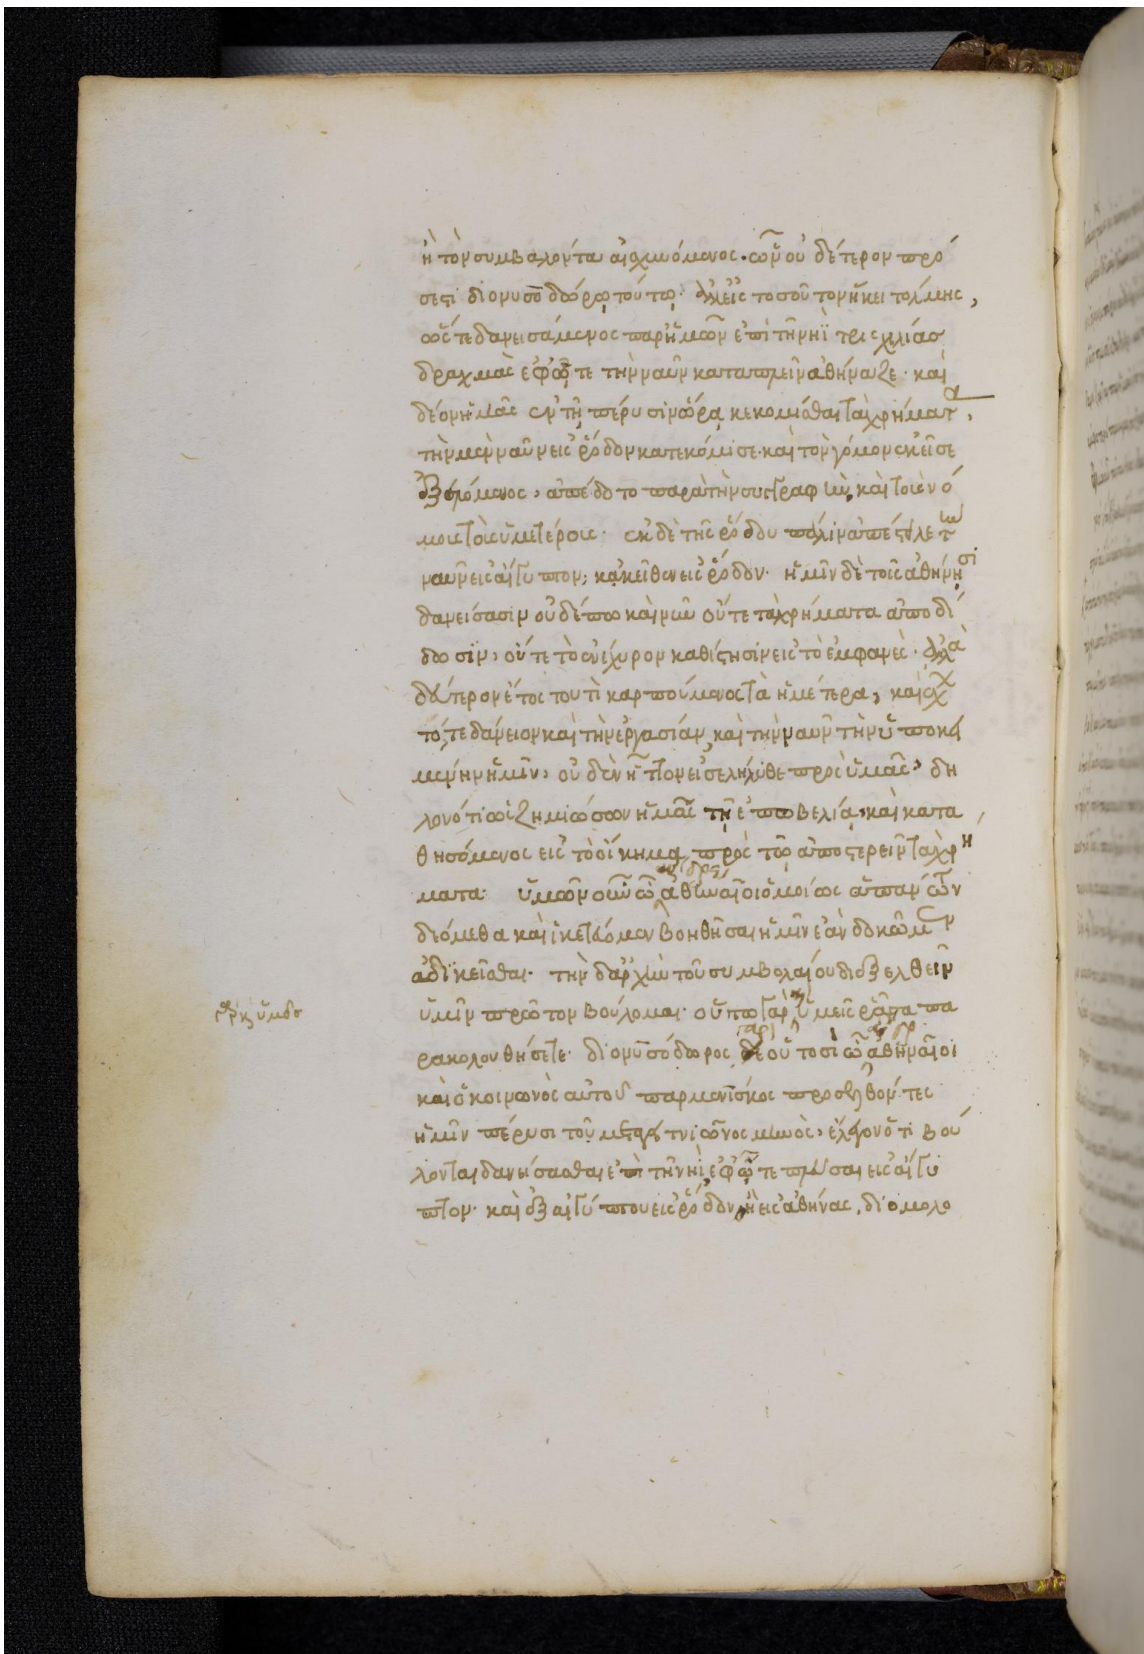 ἢ τὸν συμβαλόντα αἰσχυνόμενος· ὧν οὐδέτερον πρό
σεστι διονυσοδώρῳ τούτῳ· ἀλλ' εἰς τοσοῦτον ἥκει τόλμης,
ὥς τε δανεισάμενος παρ' ἡμῶν ἐπὶ τῆ νηῒ τρισχιλίας
δραχμὰς ἐφ' ᾧ τε τὴν ναῦν καταπλεῖν ἀθήναζε· καὶ
δέον ἡμᾶς ἐν τῇ πέρυσιν ὥρᾳ κεκομίσθαι τὰ χρήματα,
τὴν μὲν ναῦν εἰς ῥόδον κατεκόμισε· καὶ τὸν γόμον ἐκεῖσε
ἐξελόμενος, ἀπέδοτο παρὰ τὴν συγγραφὴν, καὶ τοὺς νό
μους τοὺς ὑμετέρους· ἐκ δὲ τῆς ῥόδου πάλιν ἀπέστειλε τὴν
ναῦν εἰς αἴγυπτον· κἀκεῖθεν εἰς ῥόδον· ἡμῖν δὲ τοῖς ἀθήνησι
δανείσασιν οὐδέπω καὶ νῦν οὔτε τὰ χρήματα ἀποδί
δωσιν, οὔτε τὸ ἐνέχυρον καθίστησιν εἰς τὸ ἐμφανές· ἀλλὰ
δεύτερον ἔτος τουτὶ καρπούμενος τὰ ἡμέτερα, καὶ ἔχων
τό, τε δάνειον καὶ τὴν ἐργασίαν, καὶ τὴν ναῦν τὴν ὑποκει
μένην ἡμῖν, οὐδὲν ἧττον εἰσελήλυθε πρὸς ὑμᾶς, δη
λονότι ὡς ζημιώσων ἡμᾶς τῇ ἐπωβελίᾳ, καὶ κατα
θησόμενος εἰς τὸ οἴκημα πρὸς τῷ ἀποστερεῖν τὰ χρή
ματα· ὑμῶν οὖν ὦ ἄνδρες ἀθηναῖοι ὁμοίως ἁπάντων
δεόμεθα καὶ ἱκετεύομεν βοηθῆσαι ἡμῖν ἐὰν δοκῶμεν
ἀδικεῖσθαι· τὴν δ' ἀρχὴν τοῦ συμβολαίου διεξελθεῖν
ὑμῖν πρῶτον βούλομαι· οὕτω γὰρ καὶ ὑμεῖς ῥᾷστα πα
ρακολουθήσετε· διονυσόδωρος γὰρ οὑτοσὶ ὦ ἄνδρ ἀθηναῖοι
καὶ ὁ κοινωνὸς αὐτοῦ παρμενίσκος προσελθόντες
ἡμῖν πέρυσι τοῦ μεταγειτνιῶνος μηνὸς, ἔλεγον ὅτι βού
λονται δανείσασθαι ἐπὶ τῇ νηὶ, ἐφ' ᾧ τε πλεῦσαι εἰς αἴγυ
πτον· καὶ ἐξ αἰγύπτου εἰς ῥόδον, ἢ εἰς ἀθήνας, διομολο